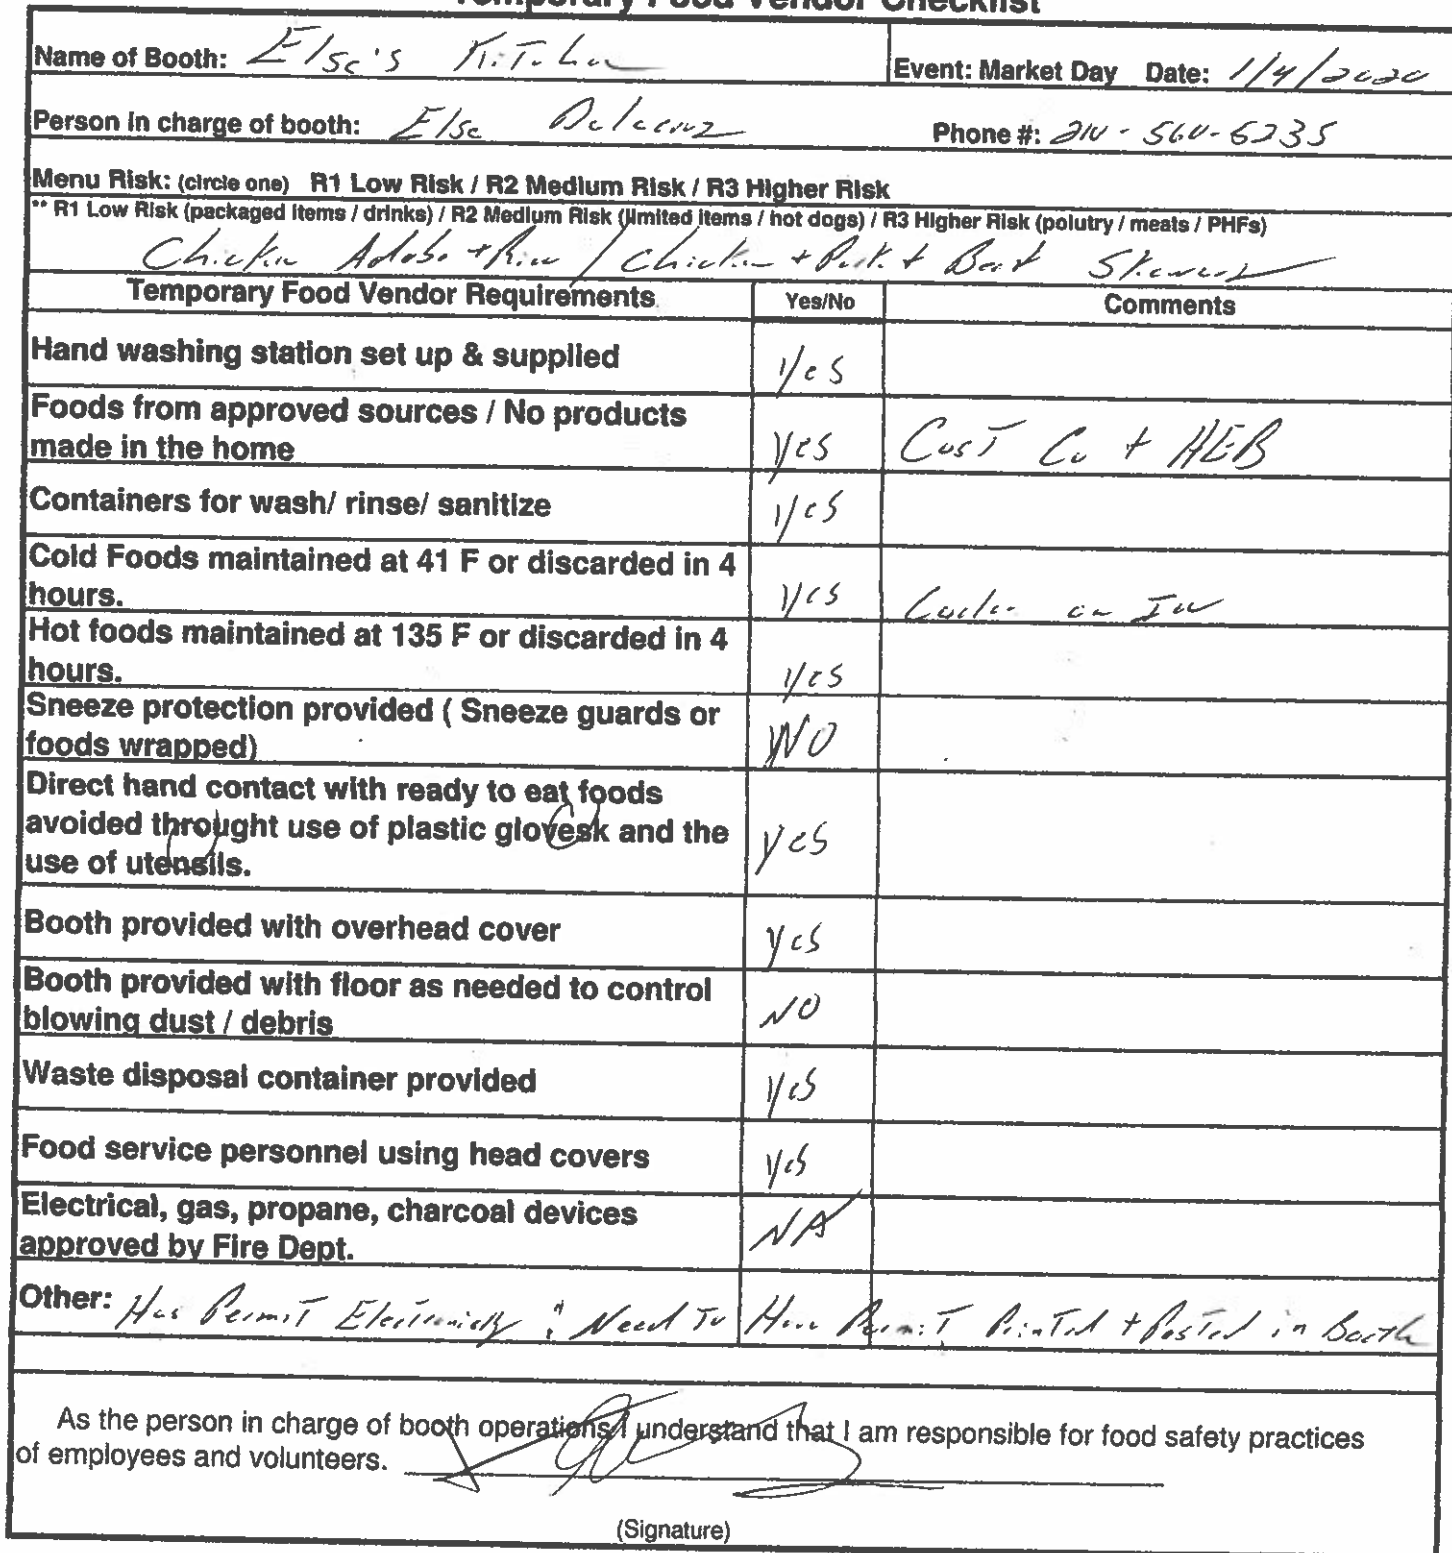 Temporary Food Vendor Checklist
Name of Booth: Else's Kitchen Event: Market Day Date: 1/4/2020
Person in charge of booth: Else Delacruz Phone #: 210-560-6235
Menu Risk: (circle one) R1 Low Risk / R2 Medium Risk / R3 Higher Risk
** R1 Low Risk (packaged items / drinks) / R2 Medium Risk (limited items / hot dogs) / R3 Higher Risk (polutry / meats / PHFs)
Chicken Adobo + Rice / Chicken + Pork + Beef Skewers
Temporary Food Vendor Requirements Yes/No Comments
Hand washing station set up & supplied Yes
Foods from approved sources / No products
made in the home Yes Cost Co + HEB
Containers for wash/ rinse/ sanitize Yes
Cold Foods maintained at 41 F or discarded in 4
hours. Yes Cooler on Ice
Hot foods maintained at 135 F or discarded in 4
hours. Yes
Sneeze protection provided ( Sneeze guards or
foods wrapped) NO
Direct hand contact with ready to eat foods
avoided throught use of plastic glovesk and the
use of utensils. Yes
Booth provided with overhead cover Yes
Booth provided with floor as needed to control
blowing dust / debris NO
Waste disposal container provided Yes
Food service personnel using head covers Yes
Electrical, gas, propane, charcoal devices
approved by Fire Dept. NA
Other: Has Permit Electronicly : Need To Have Permit Printed + Posted in Booth
As the person in charge of booth operations I understand that I am responsible for food safety practices
of employees and volunteers.
(Signature)